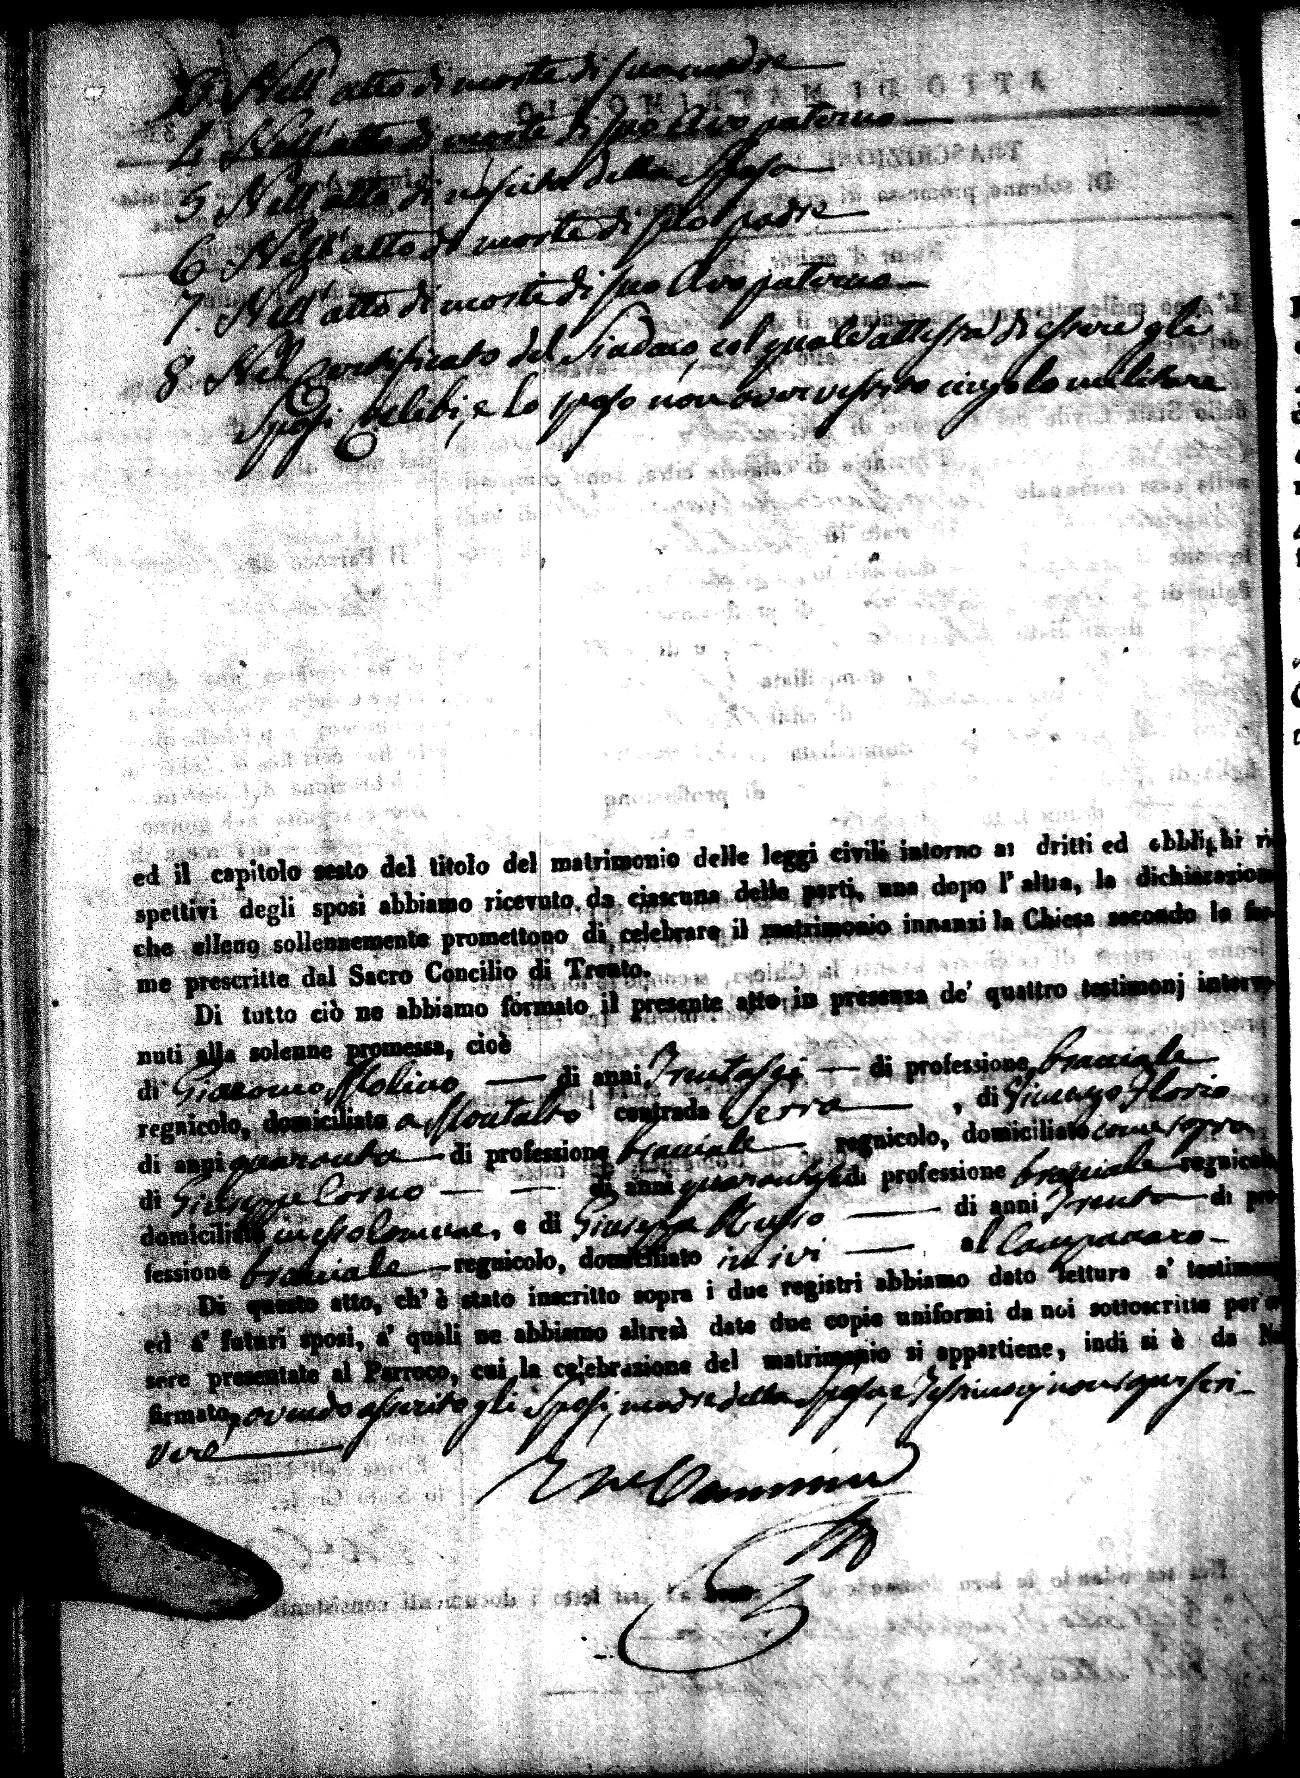 3. Nell'atto di morte di sua madre
4. Nell'atto di morte di suo Avo paterno
5. Nell'atto di nascita della Sposa
6. Nell'atto di morte di suo padre
7. Nell'atto di morte di suo Avo paterno
8. Nel Certificato del Sindaco, col quale attesta di essere gli
Sposi celibi, e lo sposo non aver vestito cingolo militare
ed il capitolo sesto del titolo del matrimonio delle leggi civili intorno ai dritti ed obblighi ri-
spettivi degli sposi abbiamo ricevuto da ciascuna delle parti, una dopo l'altra, la dichiarazione
che elleno sollennemente promettono di celebrare il matrimonio innanzi la Chiesa secondo le for-
me prescritte dal Sacro Concilio di Trento.
Di tutto ciò ne abbiamo formato il presente atto in presenza de' quattro testimonj interve-
nuti alla solenne promessa, cioè
di Giacomo Molino di anni Trentasei di professione bracciale
regnicolo, domiciliato a Montalto contrada Serra , di Gennaro Florio
di anni quaranta di professione bracciale regnicolo, domiciliato come sopra
di Giuseppe Corno di anni di professione bracciale regnicolo
domiciliato in esso Comune, e di Giuseppe Russo di anni Trenta di pro-
fessione bracciale regnicolo, domiciliato in ivi al
Di questo atto, ch' è stato inscritto sopra i due registri abbiamo dato lettura a' testimonj
ed a' futuri sposi, a' quali ne abbiamo altresì date due copie uniformi da noi sottoscritte per es-
sere presentate al Parroco, cui la celebrazione del matrimonio si appartiene, indi si è da Noi
firmato, avendo asserito gli Sposi, madre della Sposa, e Testimonj non saper scri-
vere